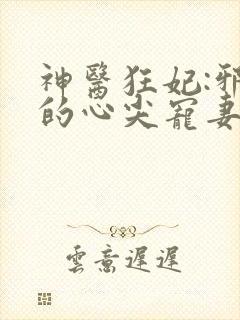 神醫狂妃:邪
的心尖寵妻
雲意遲遲